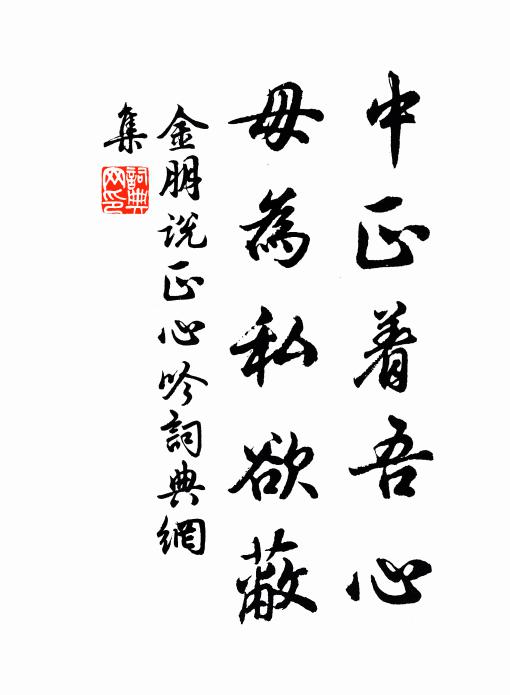 中正着吾心
毋為私欲蔽
金朋說正心吟詞典網
集
詞典
网印